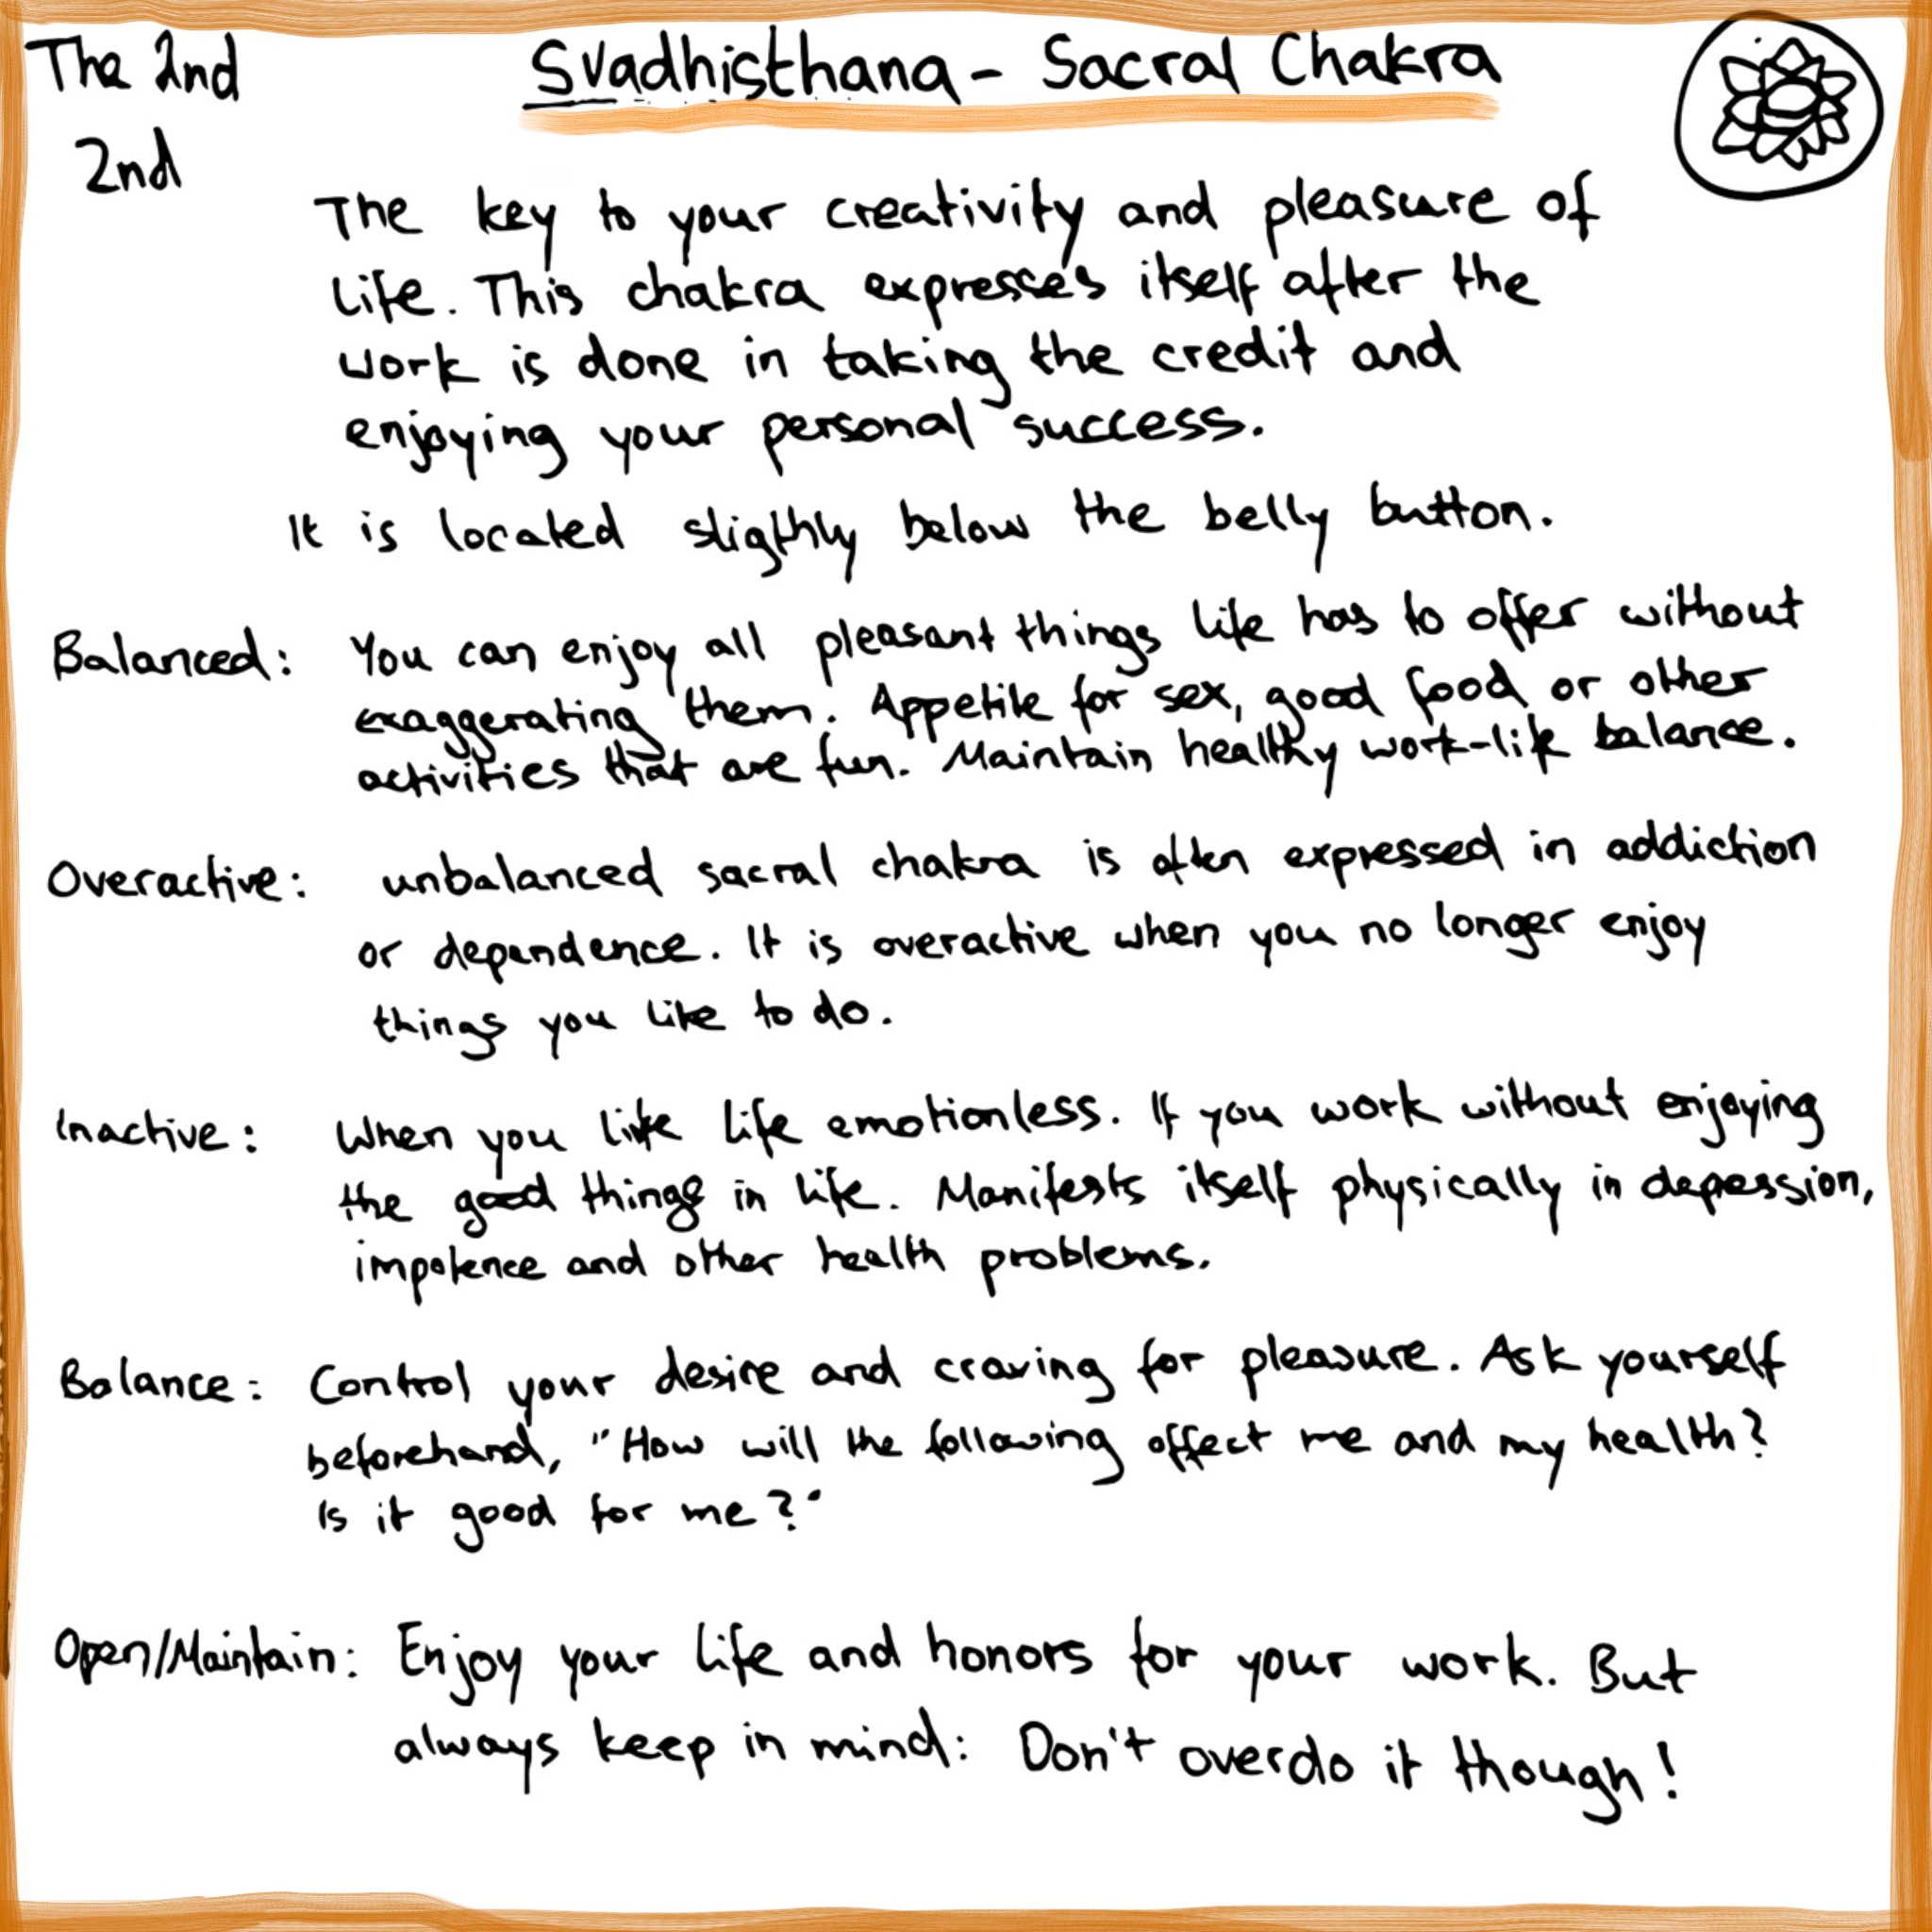 The 2nd
2nd
Svadhisthana - Sacral Chakra
The key to your creativity and pleasure of
life. This chakra expresses itself after the
work is done in taking the credit and
enjoying your personal success.
It is located sligthly below the belly button.
Balanced: You can enjoy all pleasant things life has to offer without
exaggerating them. Appetite for sex, good food or other
activities that are fun. Maintain healthy work-life balance.
Overactive: unbalanced sacral chakra is often expressed in addiction
or dependence. It is overactive when you no longer enjoy
things you like to do.
Inactive: When you live life emotionless. If you work without enjoying
the good things in life. Manifests itself physically in depression,
impotence and other health problems.
Balance: Control your desire and craving for pleasure. Ask yourself
beforehand, "How will the following affect me and my health?
Is it good for me?"
Open/Maintain: Enjoy your life and honors for your work. But
always keep in mind: Don't overdo it though!